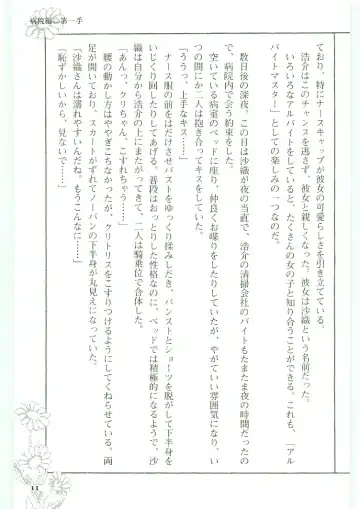 病院編・第一手
ており、特にナースキャップが彼女の可愛らしさを引き立てている。
浩介はこのチャンスを逃さず、彼女と親しくなった。彼女は沙織という名前だった。
いろいろなアルバイトをしていると、たくさんの女の子と知り合うことができる。これも、「アル
バイトマスター」としての楽しみの一つなのだ。
数日後の深夜、この日は沙織が夜の当直で、浩介の清掃会社のバイトもたまたま夜の時間だったの
で、病院内で会う約束をした。
空いている病室のベッドに座り、仲良くお喋りをしたりしていたが、やがていい雰囲気になり、い
つの間にか二人は抱き合ってキスをしていた。
「ううっ、上手なキス……」
ナース服の前をはだけさせバストをゆっくり揉みしだき、パンストとショーツを脱がして下半身を
いじくり回したりしてあげる。普段はおっとりした性格なのに、ベッドでは積極的になるようで、沙
織は自分から浩介の上にまたがってきて、二人は騎乗位で合体した。
「あんっ、クリちゃん、こすれちゃう……」
腰の動かし方はややぎこちなかったが、クリトリスをこすりつけるようにしてくねらせている。両
足が開いており、スカートがずれてノーパンの下半身が丸見えになっていた。
「沙織さんは濡れやすいんだね。もうこんなに……」
「恥ずかしいから、見ないで……」
11